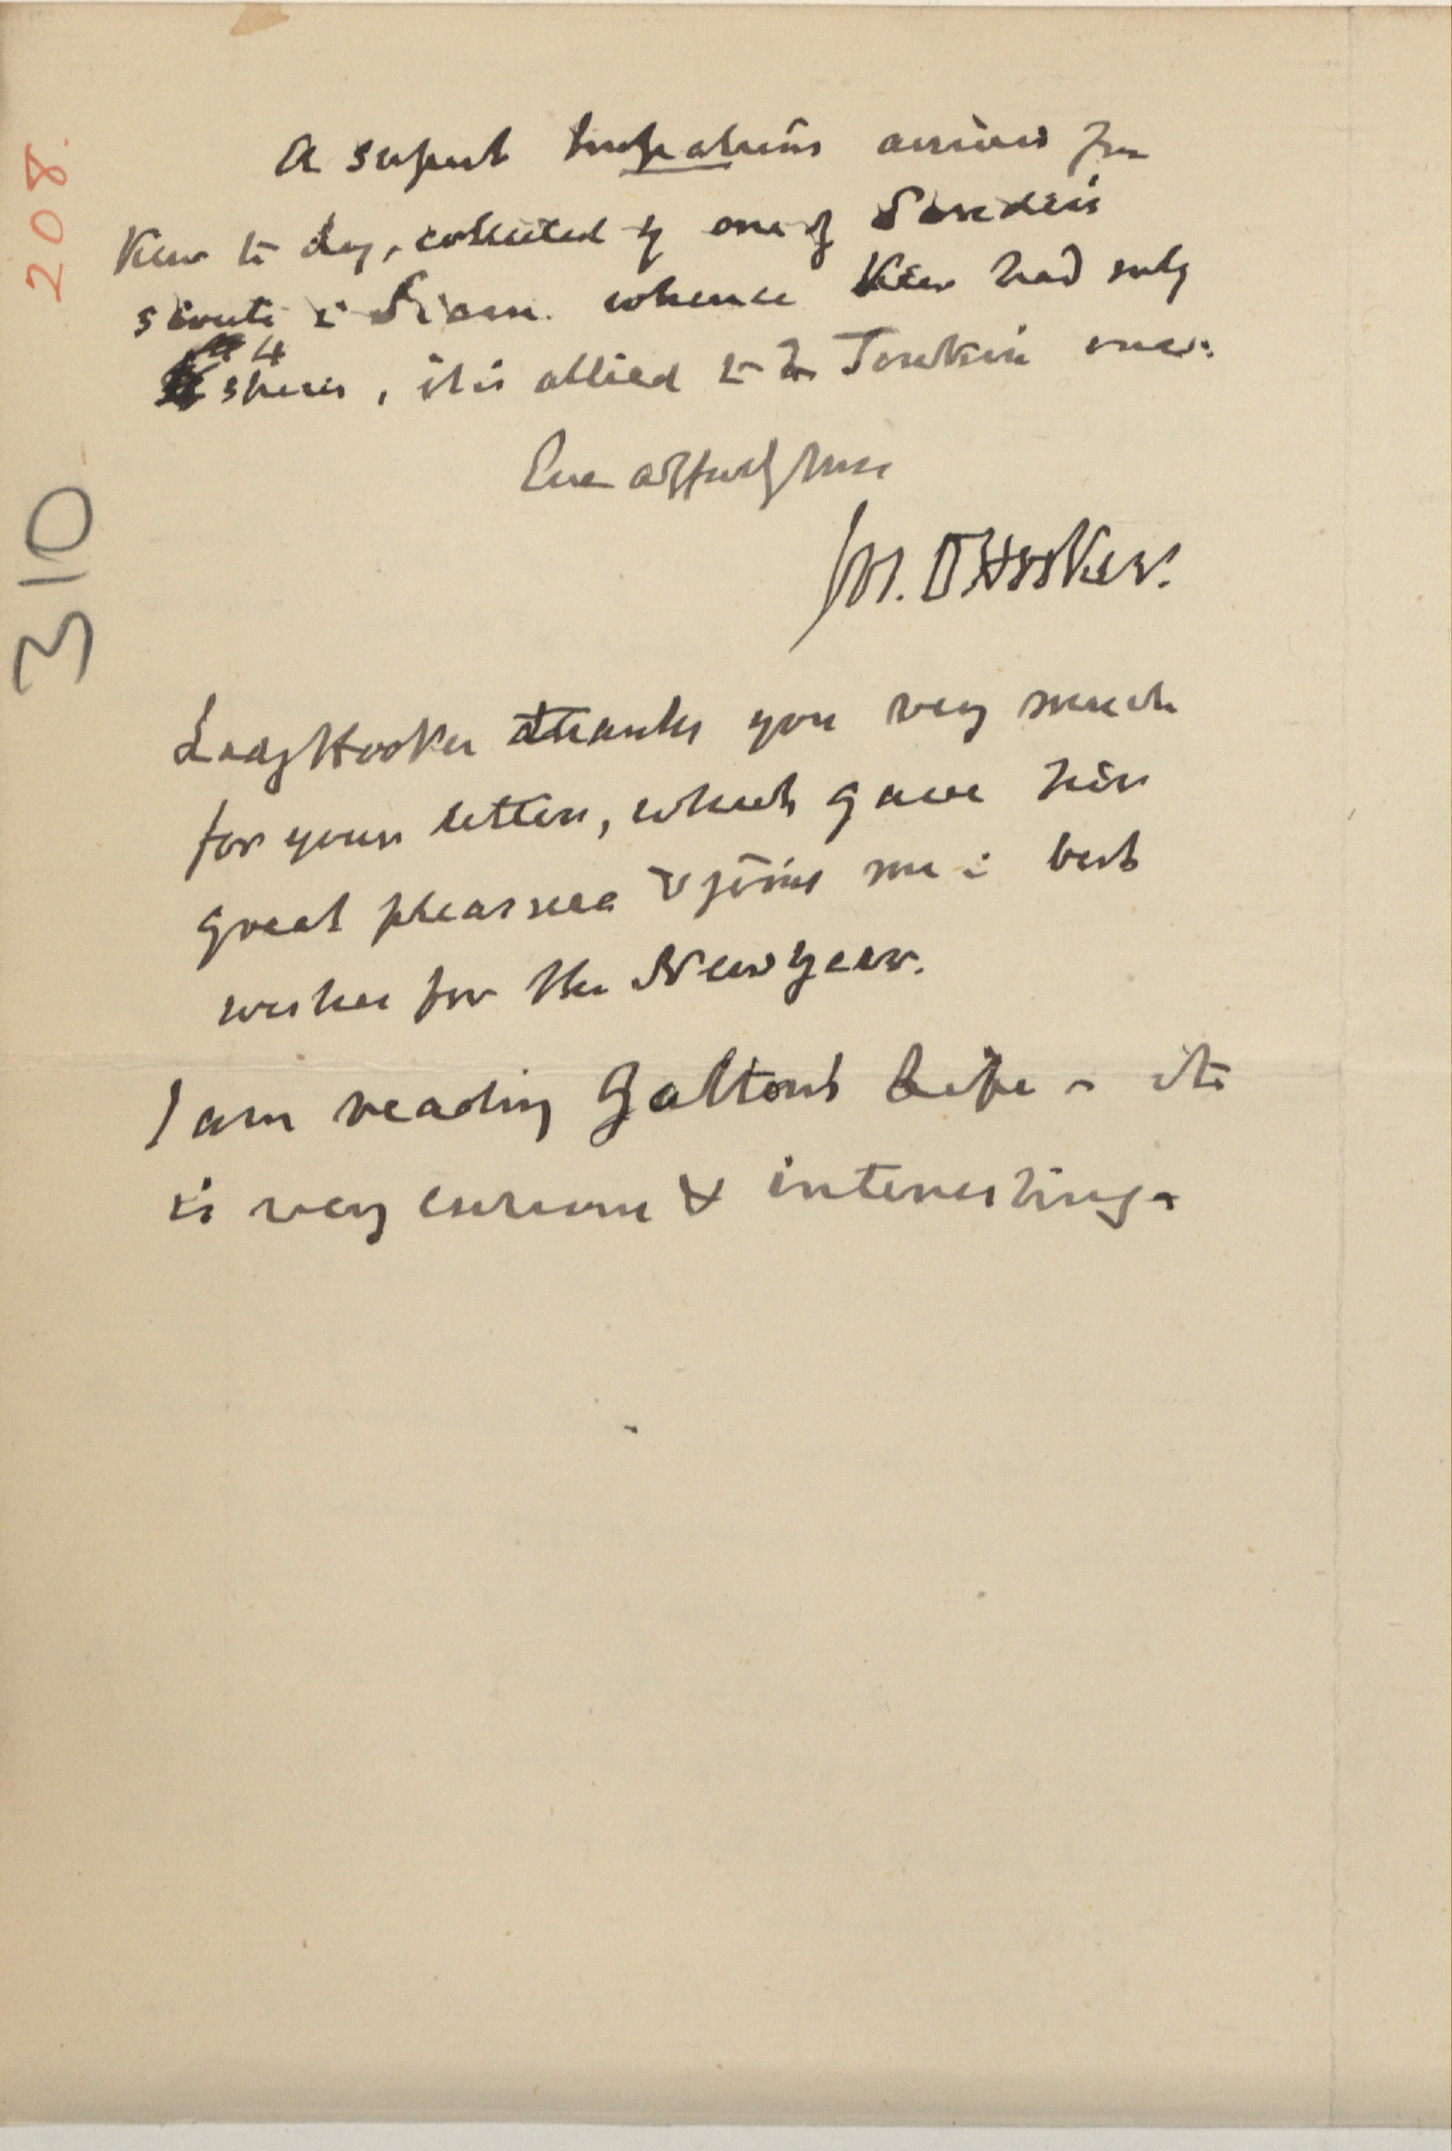 208.
310
A superb Impatiens arrived from
Kew to day, collected by one of Sanders
scouts in Siam. whence Kew had only
4 species, it is allied to the Tonkin ones.
Ever affectly yours
Jos. D Hooker.
Lady Hooker thanks you very much
for your letter, which gave her
great pleasure & joins me in best
wishes for the New year.
I am reading Galtons Life - it
is very curious & interesting -